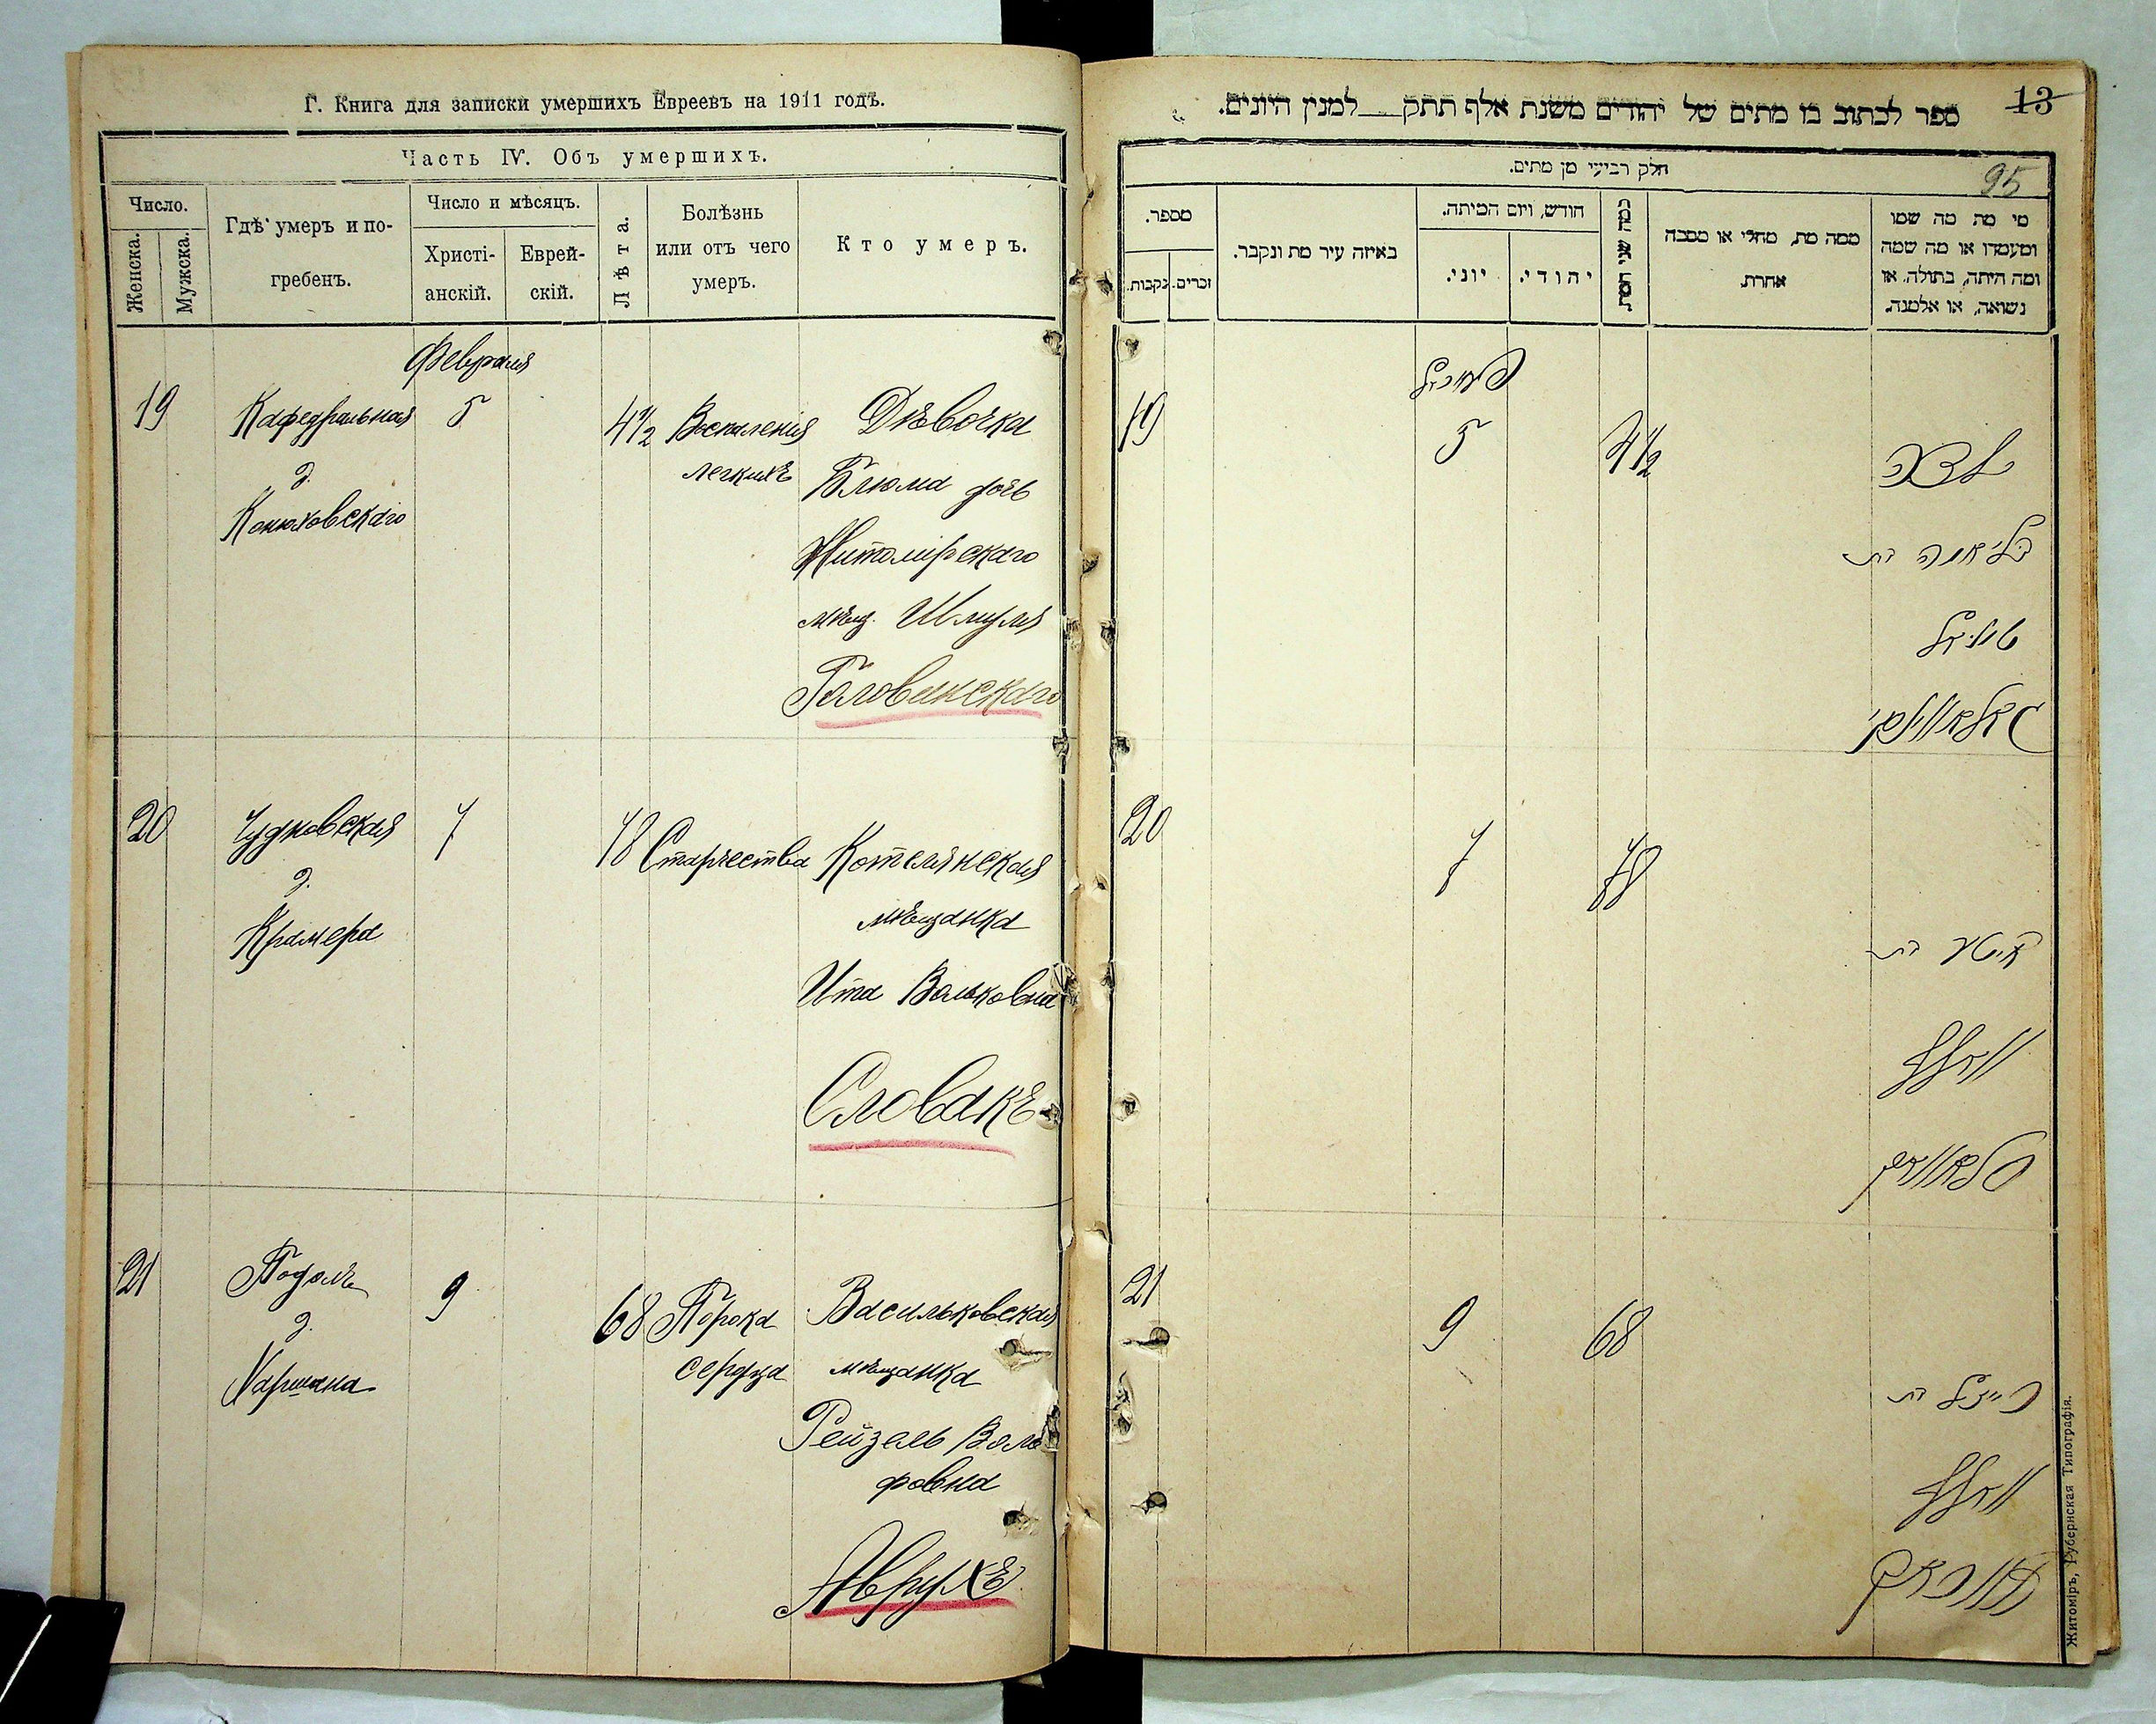 Г. Книга для записки умершихъ Евреевъ на 1911 годъ.
Часть IV. Объ умершихъ.
Число.
Женска.
Мужска.
Гдѣ умеръ и по-
гребенъ.
Число и мѣсяцъ.
Христі-
анскій.
Еврей-
скій.
Лѣта.
Болѣзнь
или отъ чего
умеръ.
Кто умеръ.
Февраля
19
Кафедральная
д.
Конюховскаго
5
4½
Воспаленія
легкихъ
Дѣвочка
Блюма дочь
Житомірскаго
мѣщ. Шмуля
Головинскаго
20
Чудновская
д.
Крамера
7
78
Старчества
Котелянская
мѣщанка
Ита Вольковна
Словакъ
21
Подолъ
д.
9
68
Порока
сердца
Васильковская
мѣщанка
Рейзель Воль
фовна
Аврухъ
13
ספר לכתוב בו מתים של יהודים משנת אלף תתק למנין היונים.
95
חלק רביעי מן מתים.
מספר.
זכרים.
נקבות.
באיזה עיר מת ונקבר.
חודש, ויום המיתה.
יוני.
יהודי.
כמה שני המת
ממה מת, מחלי או מסבה
אחרת.
מי מת מה שמו
ומעמדו או מה שמה
ומה היתה, בתולה, או
נשואה, או אלמנה.
19
5
4½
ילדה
בליומה בת
שמואל
גאלאווינסקי
20
7
78
איטע בת
וואלף
סלאוואק
21
9
68
רייזל בת
וואלף
Житоміръ, Губернская Типографія.